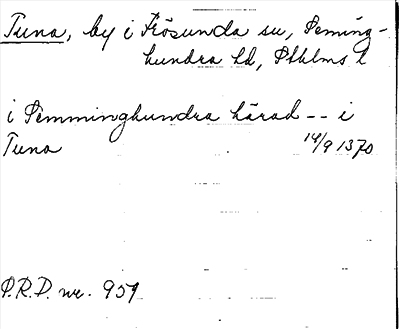 Tuna, by i Frösunda sn, Seming-
hundra hd, Sthlms l
i Semminghundra härad -- i
Tuna 14/9 1370
P.R.D. nr. 959